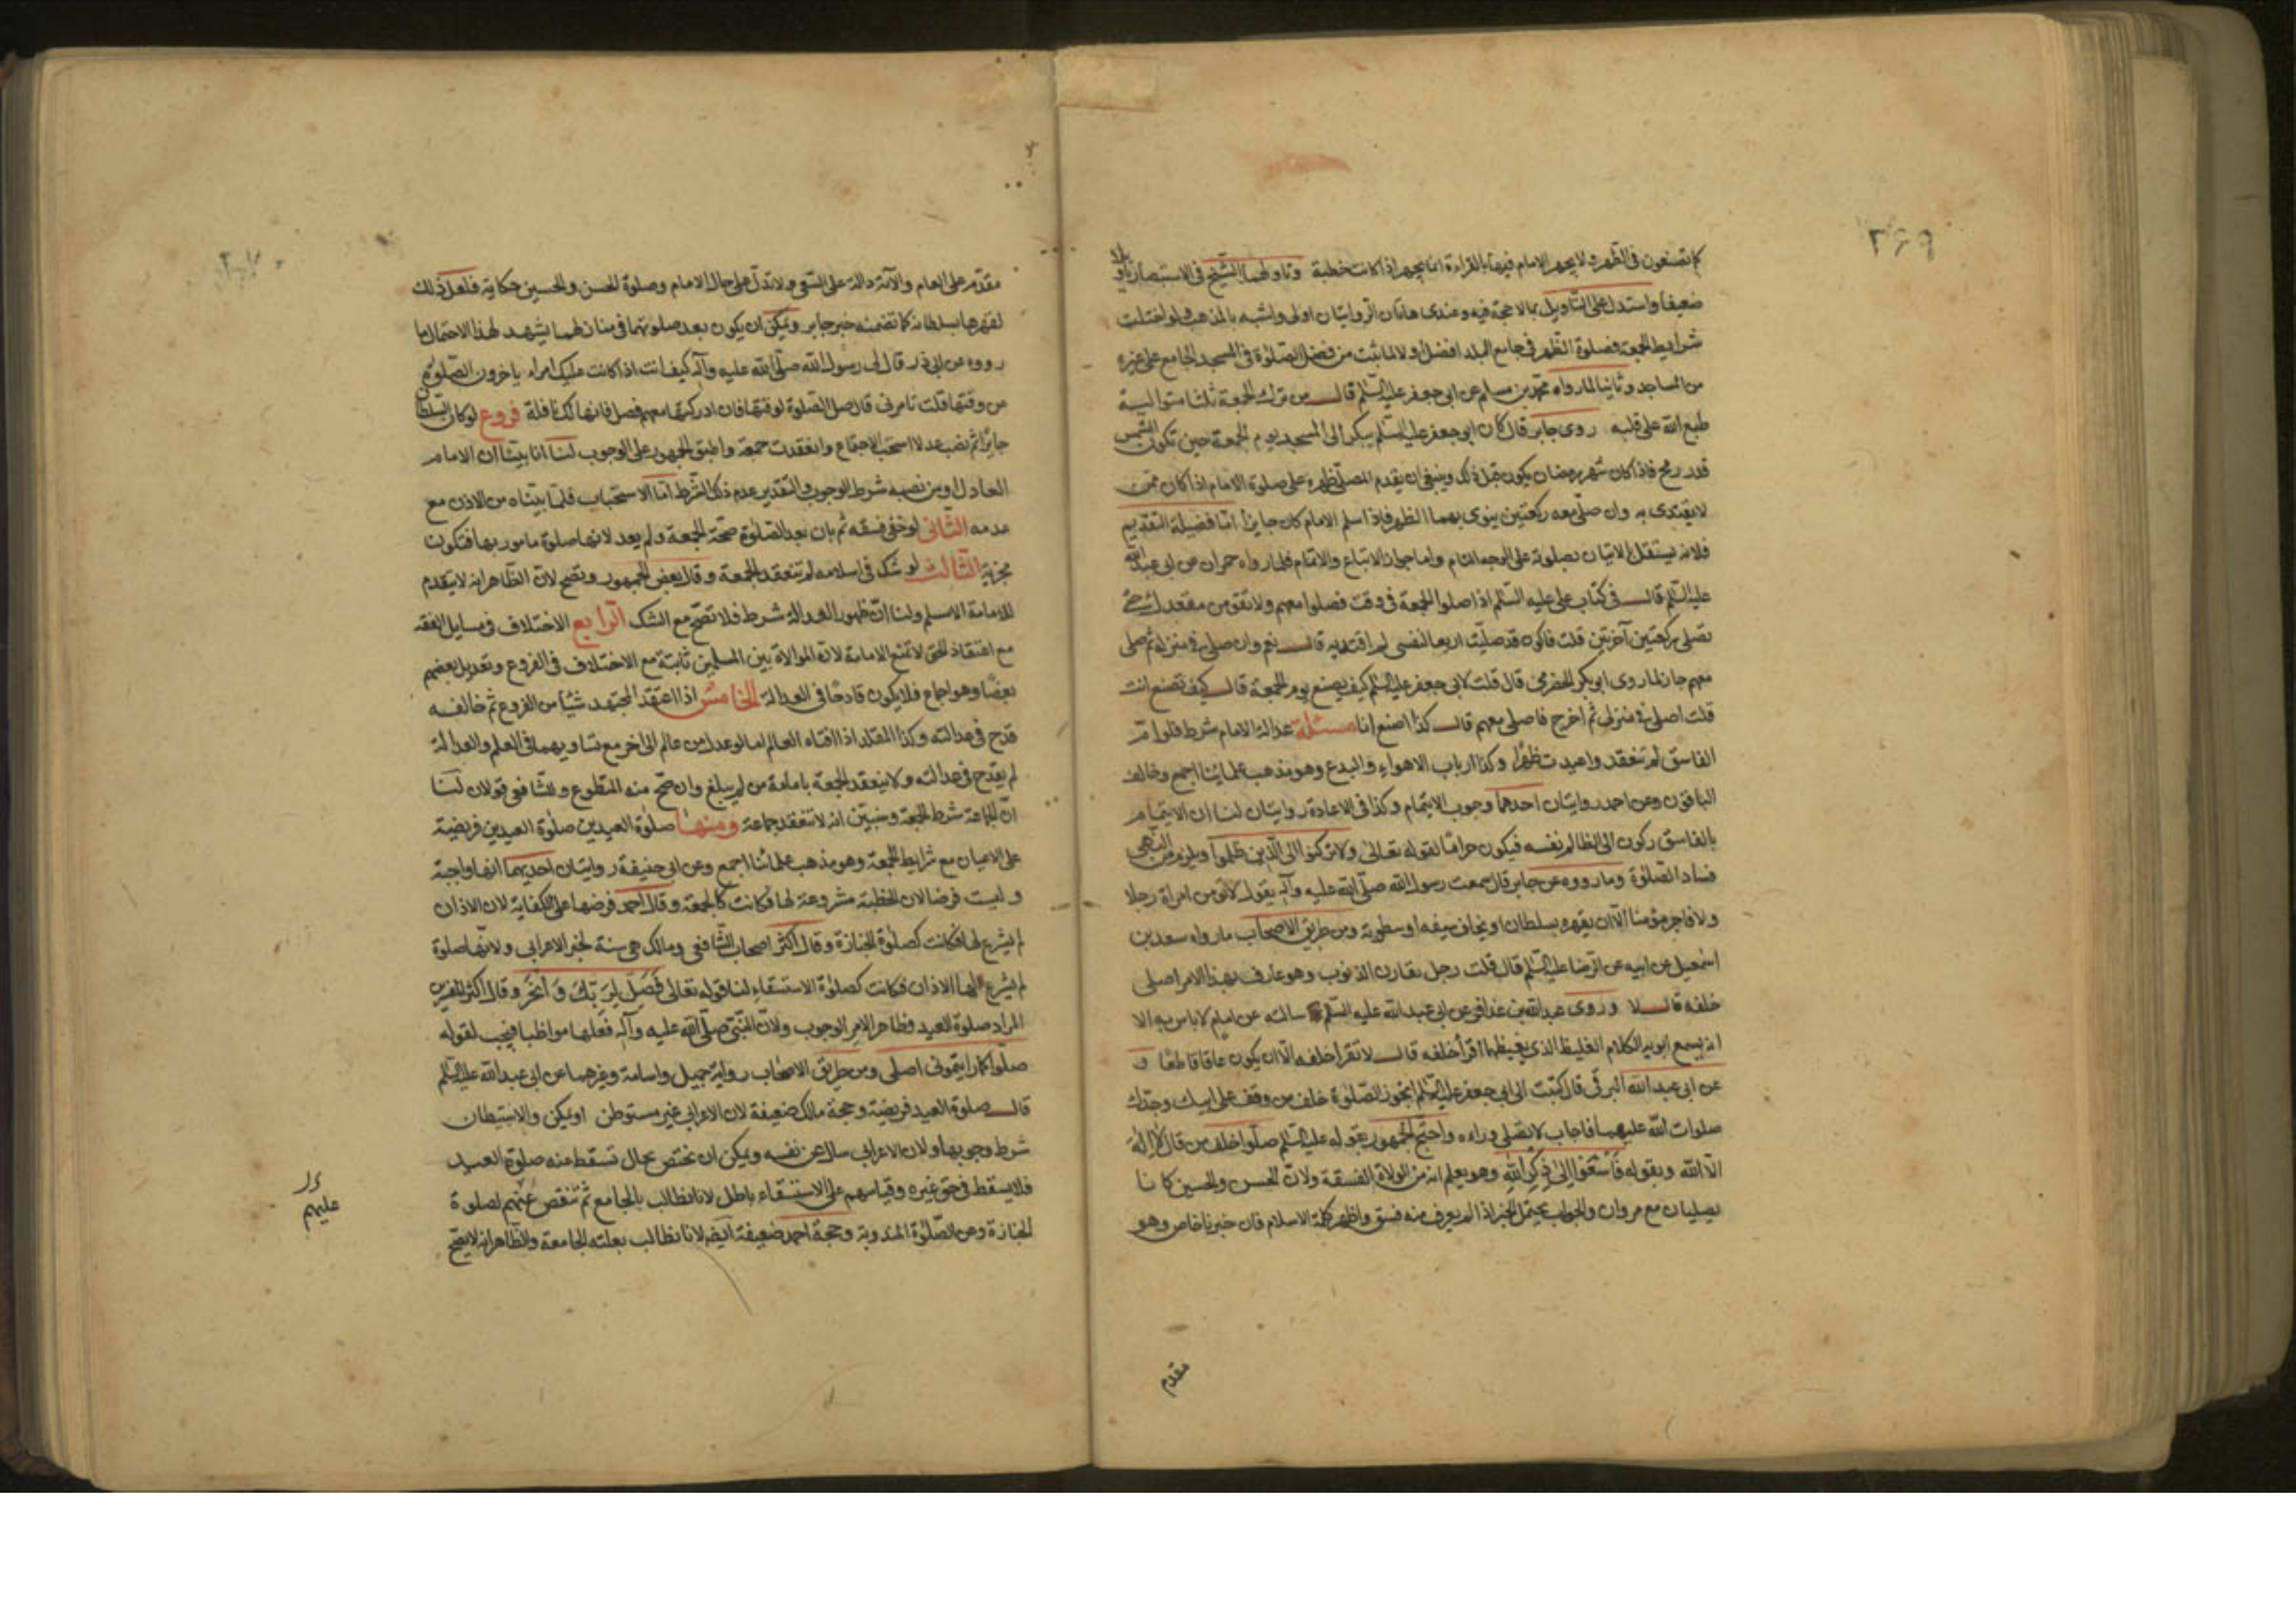 ٢٦٩
كما تصنعون فى الظهر ولا يجهر الامام فيها بالقراءة انما يجهر اذا كانت خطبة وتاولهما الشيخ فى الاستبصار تاويلا
ضعيفا واستدل على التاويل بما لا حجة فيه وعندى هاتان الروايتان اولى واشبه بالمذهب ولو اختلت
شرايط الجمعة فصلوة الظهر فى جامع البلد افضل ولا لما ثبت من فضل الصلوة فى المسجد الجامع على غيره
من المساجد وثانيا لما رواه محمد بن مسلم عن ابى جعفر عليه السلم قال من ترك الجمعة ثلثا متوالية
طبع الله على قلبه روى جابر قال كان ابو جعفر عليه السلم يبكر الى المسجد يوم الجمعة حين تكون الشمس
قدر رمح فاذا كان شهر رمضان يكون قبل ذلك وينبغى ان يقدم المصلى ظهره على صلوة الامام اذا كان ممن
لا يقتدى به وان صلى معه ركعتين ينوى بهما الظهر فاذا سلم الامام كان جايزا اما فضيلة التقديم
فلانه يستقل بالاتيان بصلوته على الوجه التام واما جواز الاتباع والاتمام فلما رواه حمران عن ابى عبد الله
عليه السلم قال فى كتاب على عليه السلم اذا صلوا الجمعة فى وقت فصلوا معهم ولا تقومن من مقعدك حتى
تصلى ركعتين آخرتين قلت فاكون قد صليت اربعا لنفسى لم اقتد به قال نعم وان صلى فى منزله ثم صلى
معهم جاز لما روى ابو بكر الحضرمى قال قلت لابى جعفر عليه السلم كيف يصنع يوم الجمعة قال كيف تصنع انت
قلت اصلى فى منزلى ثم اخرج فاصلى معهم قال كذا اصنع انا مسئلة عدالة الامام شرط فلو ام
الفاسق لم تنعقد واعيدت ظهرا وكذا ارباب الاهواء والبدع وهو مذهب علمائنا اجمع وخالف
الباقون وعن احمد روايتان احدهما وجوب الايتمام وكذا فى الاعادة روايتان لنا ان الايتمام
بالفاسق ركون الى الظالم نفسه فيكون حراما لقوله تعالى ولا تركنوا الى الذين ظلموا ويلزم من النهى
فساد الصلوة وما رووه عن جابر قال سمعت رسول الله صلى الله عليه وآله يقول لا تؤمن امراة رجلا
ولا فاجر مؤمنا الا ان يقهره بسلطان او يخاف سيفه او سطوته ومن طريق الاصحاب ما رواه سعد بن
اسمعيل عن ابيه عن الرضا عليه السلم قال قلت رجل يقارف الذنوب وهو عارف بهذا الامر اصلى
خلفه قال لا وروى عبد الله بن عذافر عن ابى عبد الله عليه السلم سالته عن امام لا باس به الا
انه يسمع ابويه الكلام الغليظ الذى يغيظهما اقرأ خلفه قال لا تقرأ خلفه الا ان يكون عاقا قاطعا و
عن ابى عبد الله البرقى قال كتبت الى ابى جعفر عليه السلم ايجوز الصلوة خلف من وقف على ابيك وجدك
صلوات الله عليهما فاجاب لا تصلى وراءه واحتج الجمهور بقوله عليه السلم صلوا خلف من قال لا اله
الا الله وبقوله فاسعوا الى ذكر الله وهو يعلم انه من الولاة الفسقة ولان الحسن والحسين كانا
يصليان مع مروان والجواب يحتمل الخبر اذا لم يعرف منه فسق واظهر كلمة الاسلام فان خبرنا خاص وهو
مقدم
مقدم على العام والآية دالة على السعى ولا تدل على حال الامام وصلوة الحسن والحسين حكاية فلعل ذلك
لقهرهما بسلطانه كما تضمنه خبر جابر ويمكن ان يكون بعد صلوتهما فى منازلهما يشهد لهذا الاحتمال ما
رووه عن ابى ذر قال لى رسول الله صلى الله عليه وآله كيف انت اذا كانت عليك امراء ياخرون الصلوة
عن وقتها قلت تامرنى قال صل الصلوة لوقتها فان ادركتها معهم فصل فانها لك نافلة فروع لو كان السلطان
جايرا ثم نصب عدلا استحب الاجتماع وانعقدت جمعة واطبق الجمهور على الوجوب لنا انا بينا ان الامام
العادل او من نصبه شرط الوجوب والتقدير عدم ذلك الشرط اما الاستحباب فلما بيناه من الاذن مع
عدمه الثانى لو خفى فسقه ثم بان بعد الصلوة صحة الجمعة ولم يعد لانها صلوة مامور بها فتكون
مجزية الثالث لو شك فى اسلامه لم تنعقد الجمعة وقال بعض الجمهور وتصح لان الظاهر انه لا يتقدم
للامامة الا مسلم ولنا ان ظهور العدالة شرط فلا تصح مع الشك الرابع الاختلاف فى مسايل الفقه
مع اعتقاد الحق لا تمنع الامامة لان الموالاة بين المسلمين ثابتة مع الاختلاف فى الفروع وتعديل بعضهم
بعضا وهو اجماع فلا يكون قادحا فى العدالة الخامس اذا اعتقد المجتهد شيئا من الفروع ثم خالفه
قدح فى عدالته وكذا المقلد اذا افتاه العالم اما لو عدل من عالم الى آخر مع تساويهما فى العلم والعدالة
لم يقدح فى عدالته ولا ينعقد الجمعة بامامة من لم يبلغ وان صح منه التطوع وللشافعى قولان لنا
ان الجماعة شرط الجمعة وسنبين انه لا تنعقد جماعة ومنها صلوة العيدين صلوة العيدين فريضة
على الاعيان مع شرايط الجمعة وهو مذهب علمائنا اجمع وعن ابى حنيفة روايتان احديهما انها واجبة
وليست فرضا لان الخطبة مشروعة لها فكانت كالجمعة وقال احمد فرضها على الكفاية لان الاذان
لم يشرع لها فكانت كصلوة الجنازة وقال اكثر اصحاب الشافعى ومالك هى سنة لخبر الاعرابى ولانها صلوة
لم يشرع لها الاذان فكانت كصلوة الاستسقاء لنا قوله تعالى فصل لربك وانحر وقال اكثر المفسرين
المراد صلوة العيد وظاهر الامر الوجوب ولان النبى صلى الله عليه وآله فعلها مواظبا فيجب لقوله
صلوا كما رايتمونى اصلى ومن طريق الاصحاب رواية جميل واسامة وغيرهما عن ابى عبد الله عليه السلم
قال صلوة العيد فريضة وحجة مالك ضعيفة لان الاعرابى غير مستوطن او يمكن والاستيطان
شرط وجوبها ولان الاعرابى سال عن نفسه ويمكن ان يختص بحال تسقط عنه صلوة العيد
فلا يسقط فى حق غيره وقياسهم على الاستسقاء باطل لانا نطالب بالجامع ثم تنقض عنهم لصلوة
الجنازة وعن الصلوة المندوبة وحجة احمد ضعيفة ايضا لانا نطالب بعلته الجامعة والظاهر انه لا يصح
عليهم